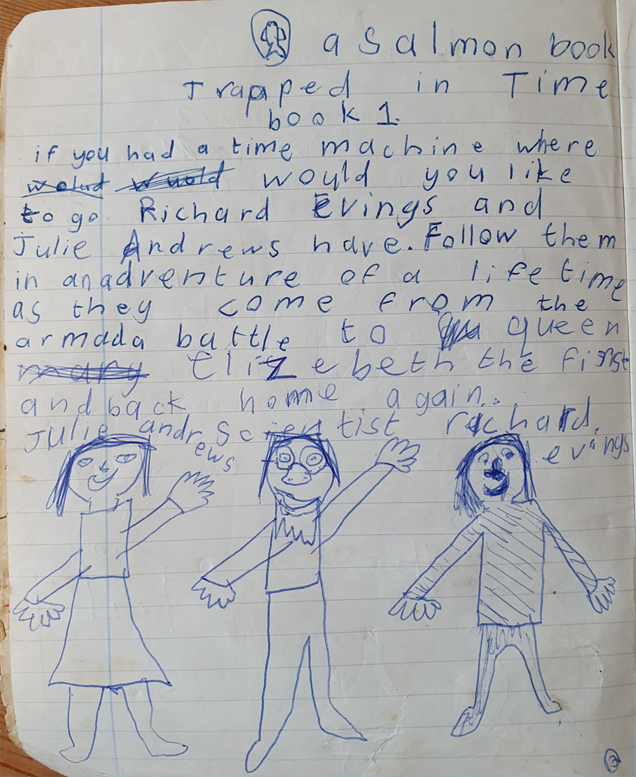 a Salmon book
Trapped in Time
book 1.
if you had a time machine where
welud wuold would you like
to go Richard Evings and
Julie Andrews have. Follow them
in an adventure of a life time
as they come from the
armada battle to queen
mary Elizebeth the first
and back home again.
Julie andrews scientist rachard evings
2